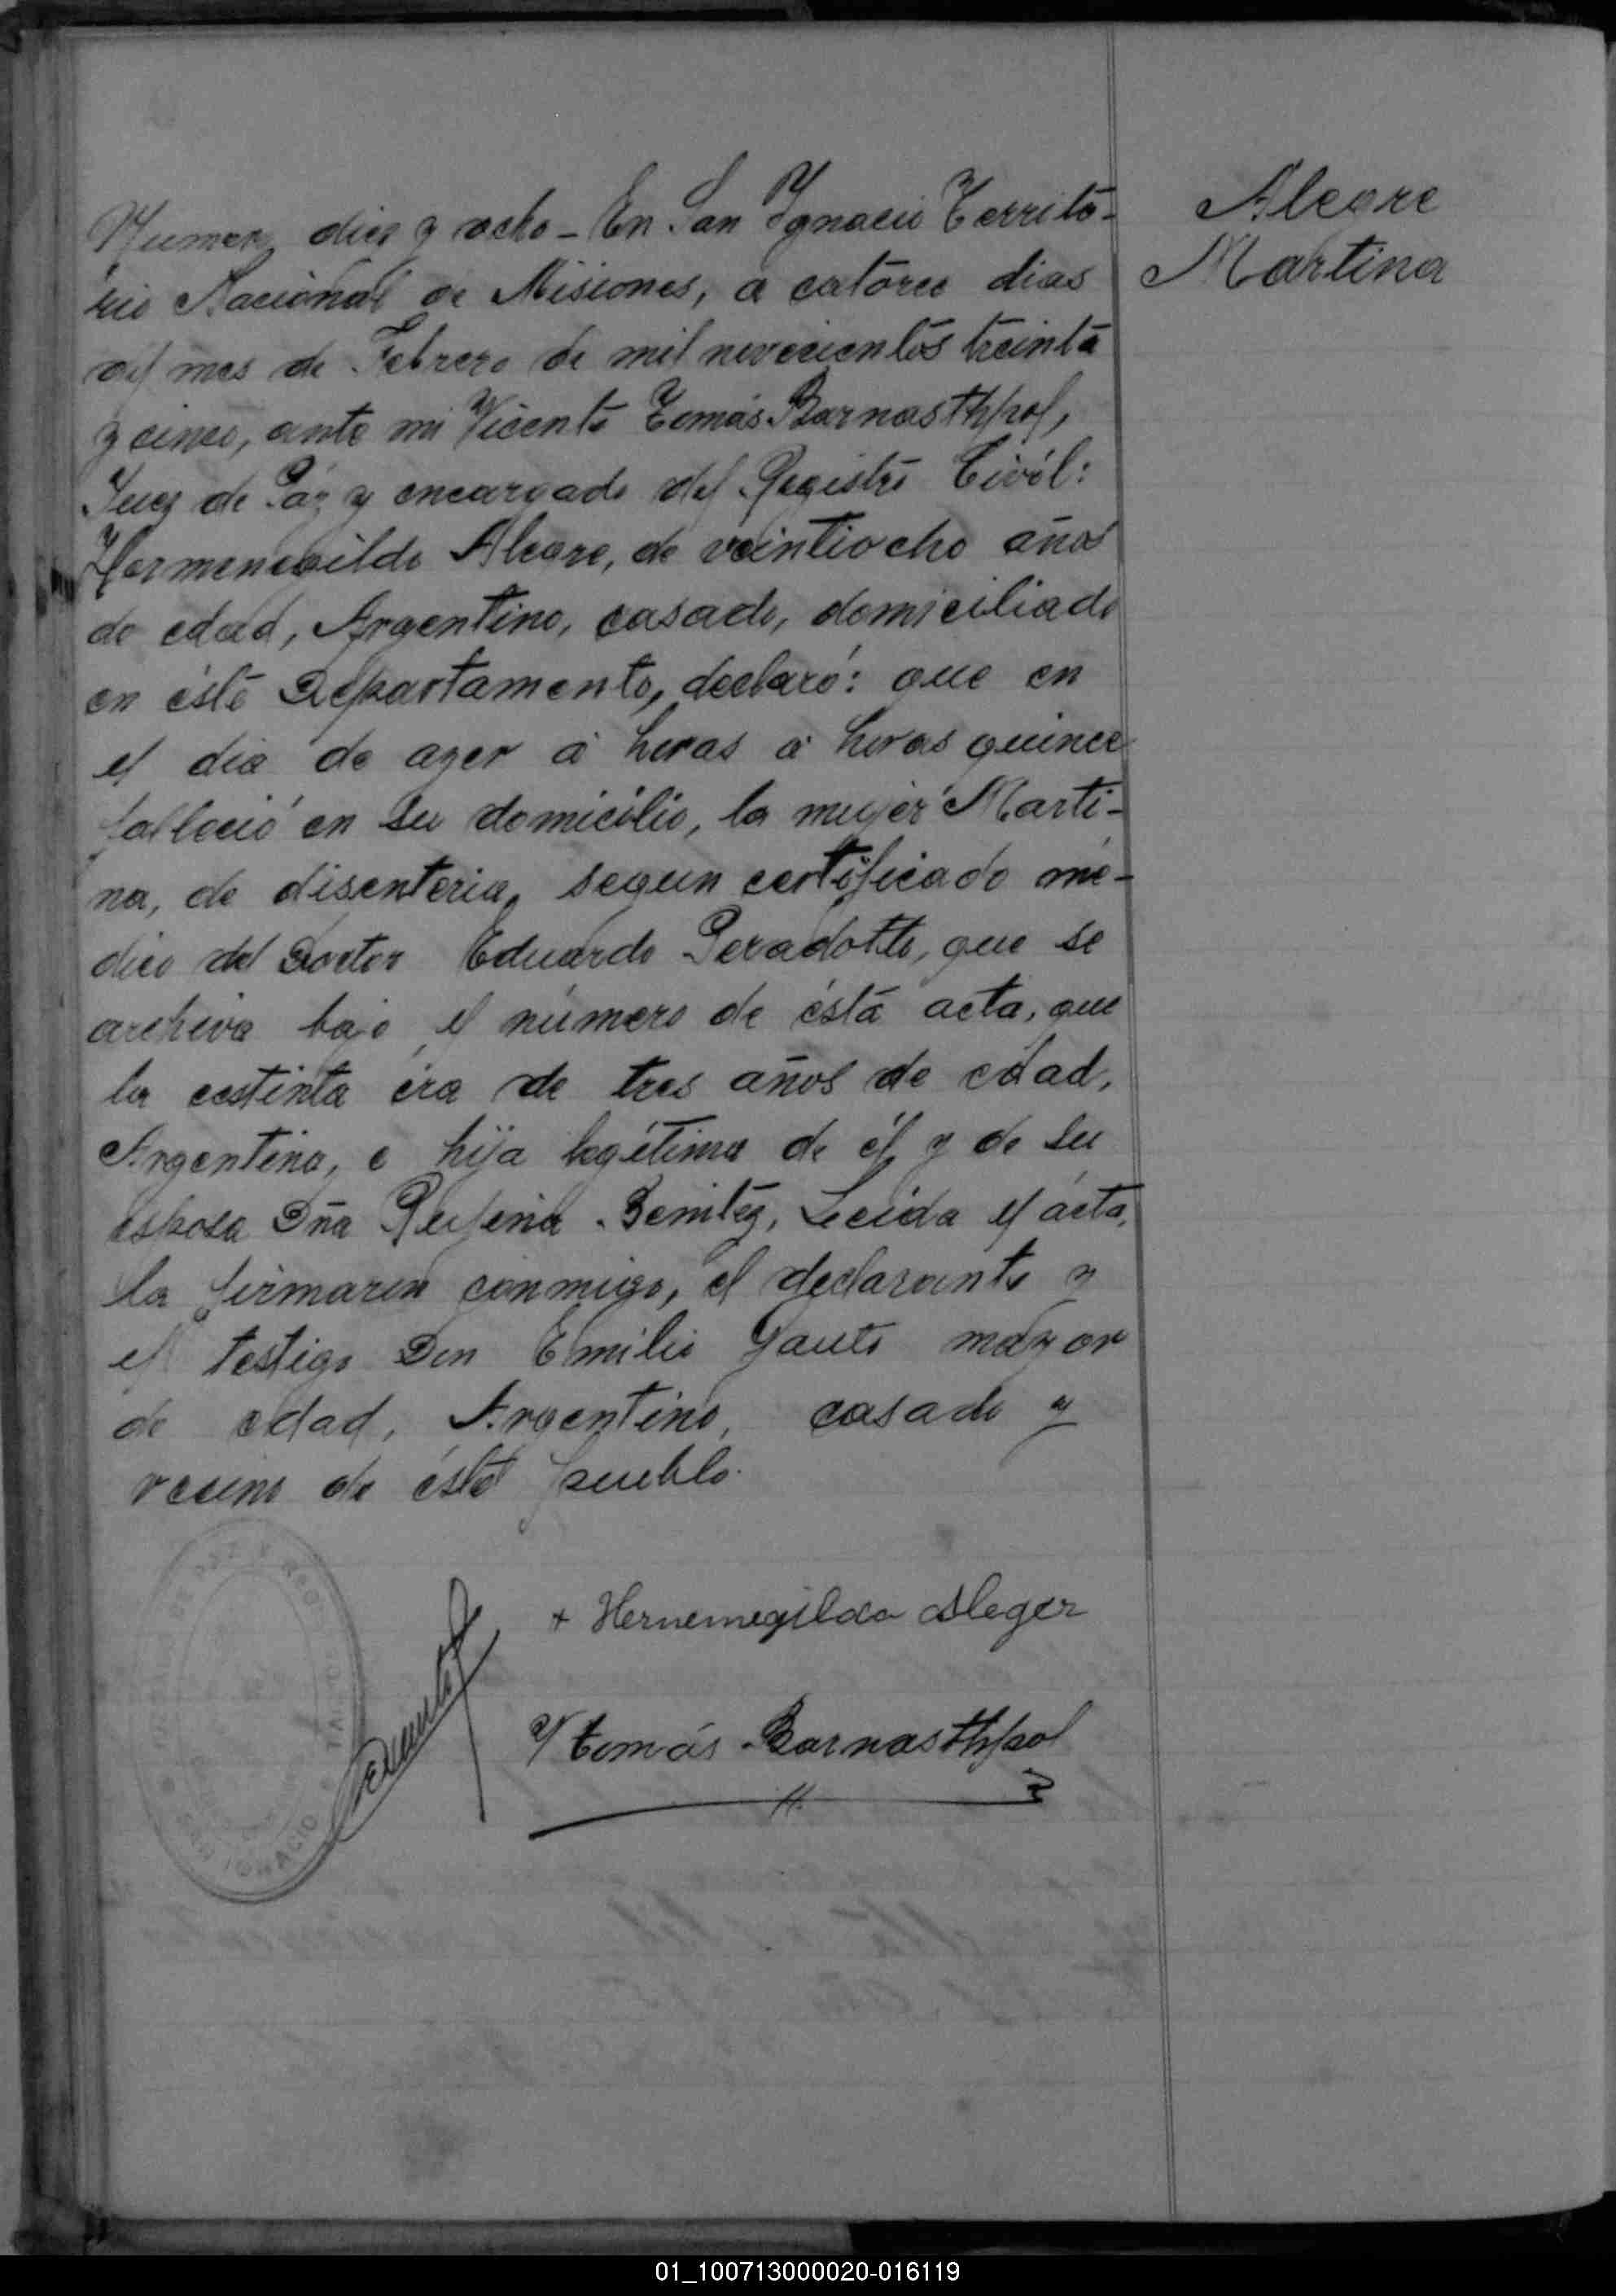 Alegre
Martina
Numero dies y ocho - En San Ygnacio Territo-
rio Nacional de Misiones, a catorce dias
del mes de Febrero de mil novecientos treinta
y cinco, ante mi Vicente Tomás Barnasthpol,
Juez de Páz y encargado del Registro Civíl:
Hermenegildo Alegre, de veintiocho años
de edad, Argentino, casado, domiciliado
en éste Departamento, declaró: que en
el dia de ayer á horas á horas quince
falleció en su domicilio, la mujer Marti-
na, de disenteria, segun certificado mé-
dico del Doctor Eduardo Peradotto, que se
archiva bajo el número de ésta acta, que
la estinta éra de tres años de edad,
Argentina, e hija legítima de él y de su
esposa Dña Rufina Benitéz, Leida el ácta,
la firmaren conmigo, el declarante y
el testigo Don Emilio Gauto mayor
de edad, Argentino, casado y
vecino de éste pueblo.
+ Hernemegildo Aleger
V Tomás Barnasthpol
SAN IGNACIO
01_100713000020-016119